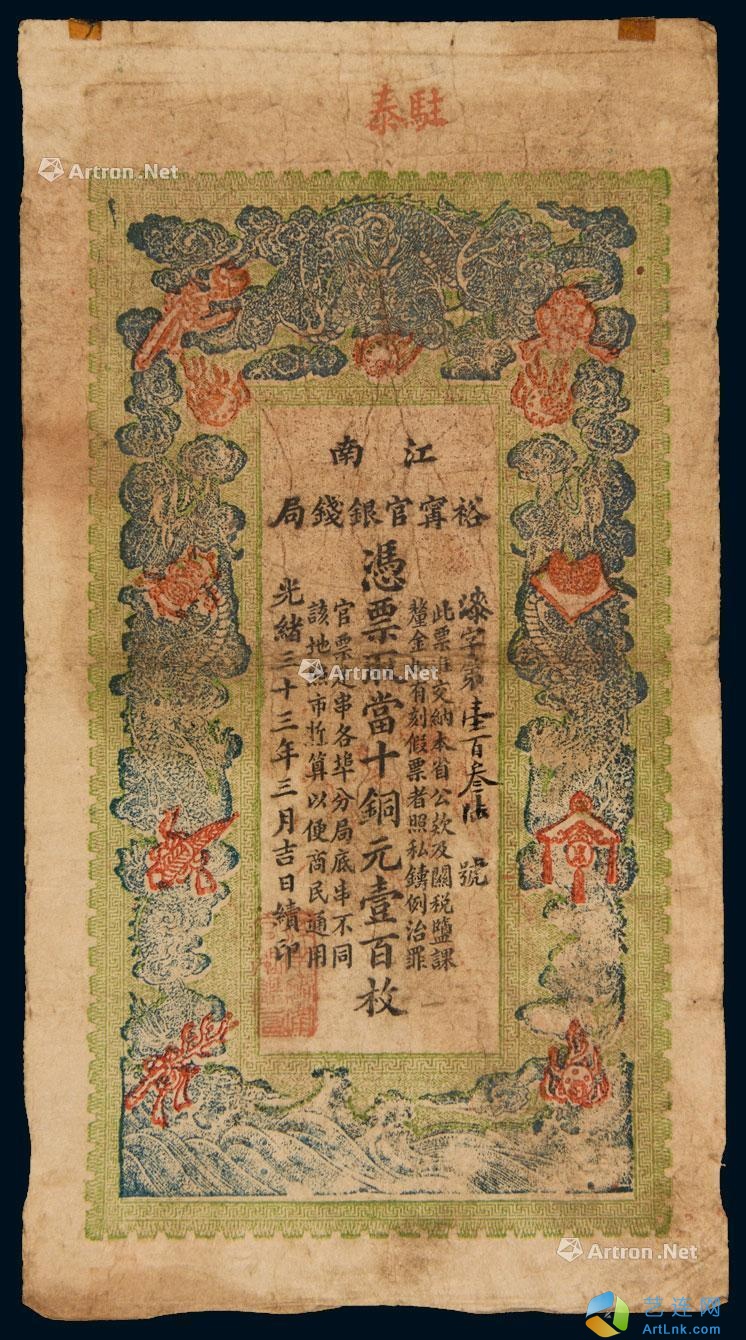 駐泰
江南
裕甯官銀錢局
字第壹百叁 號
此票准交納本省公款及關稅鹽課
釐金 有刻假票者照私鑄例治罪
憑票 當十銅元壹百枚
官票足串各埠分局底串不同
該地照市折算以便商民通用
光緒三十三年三月吉日續印
Artron.Net
Artron.Net
Artron.Net
艺连网
ArtLnk.com